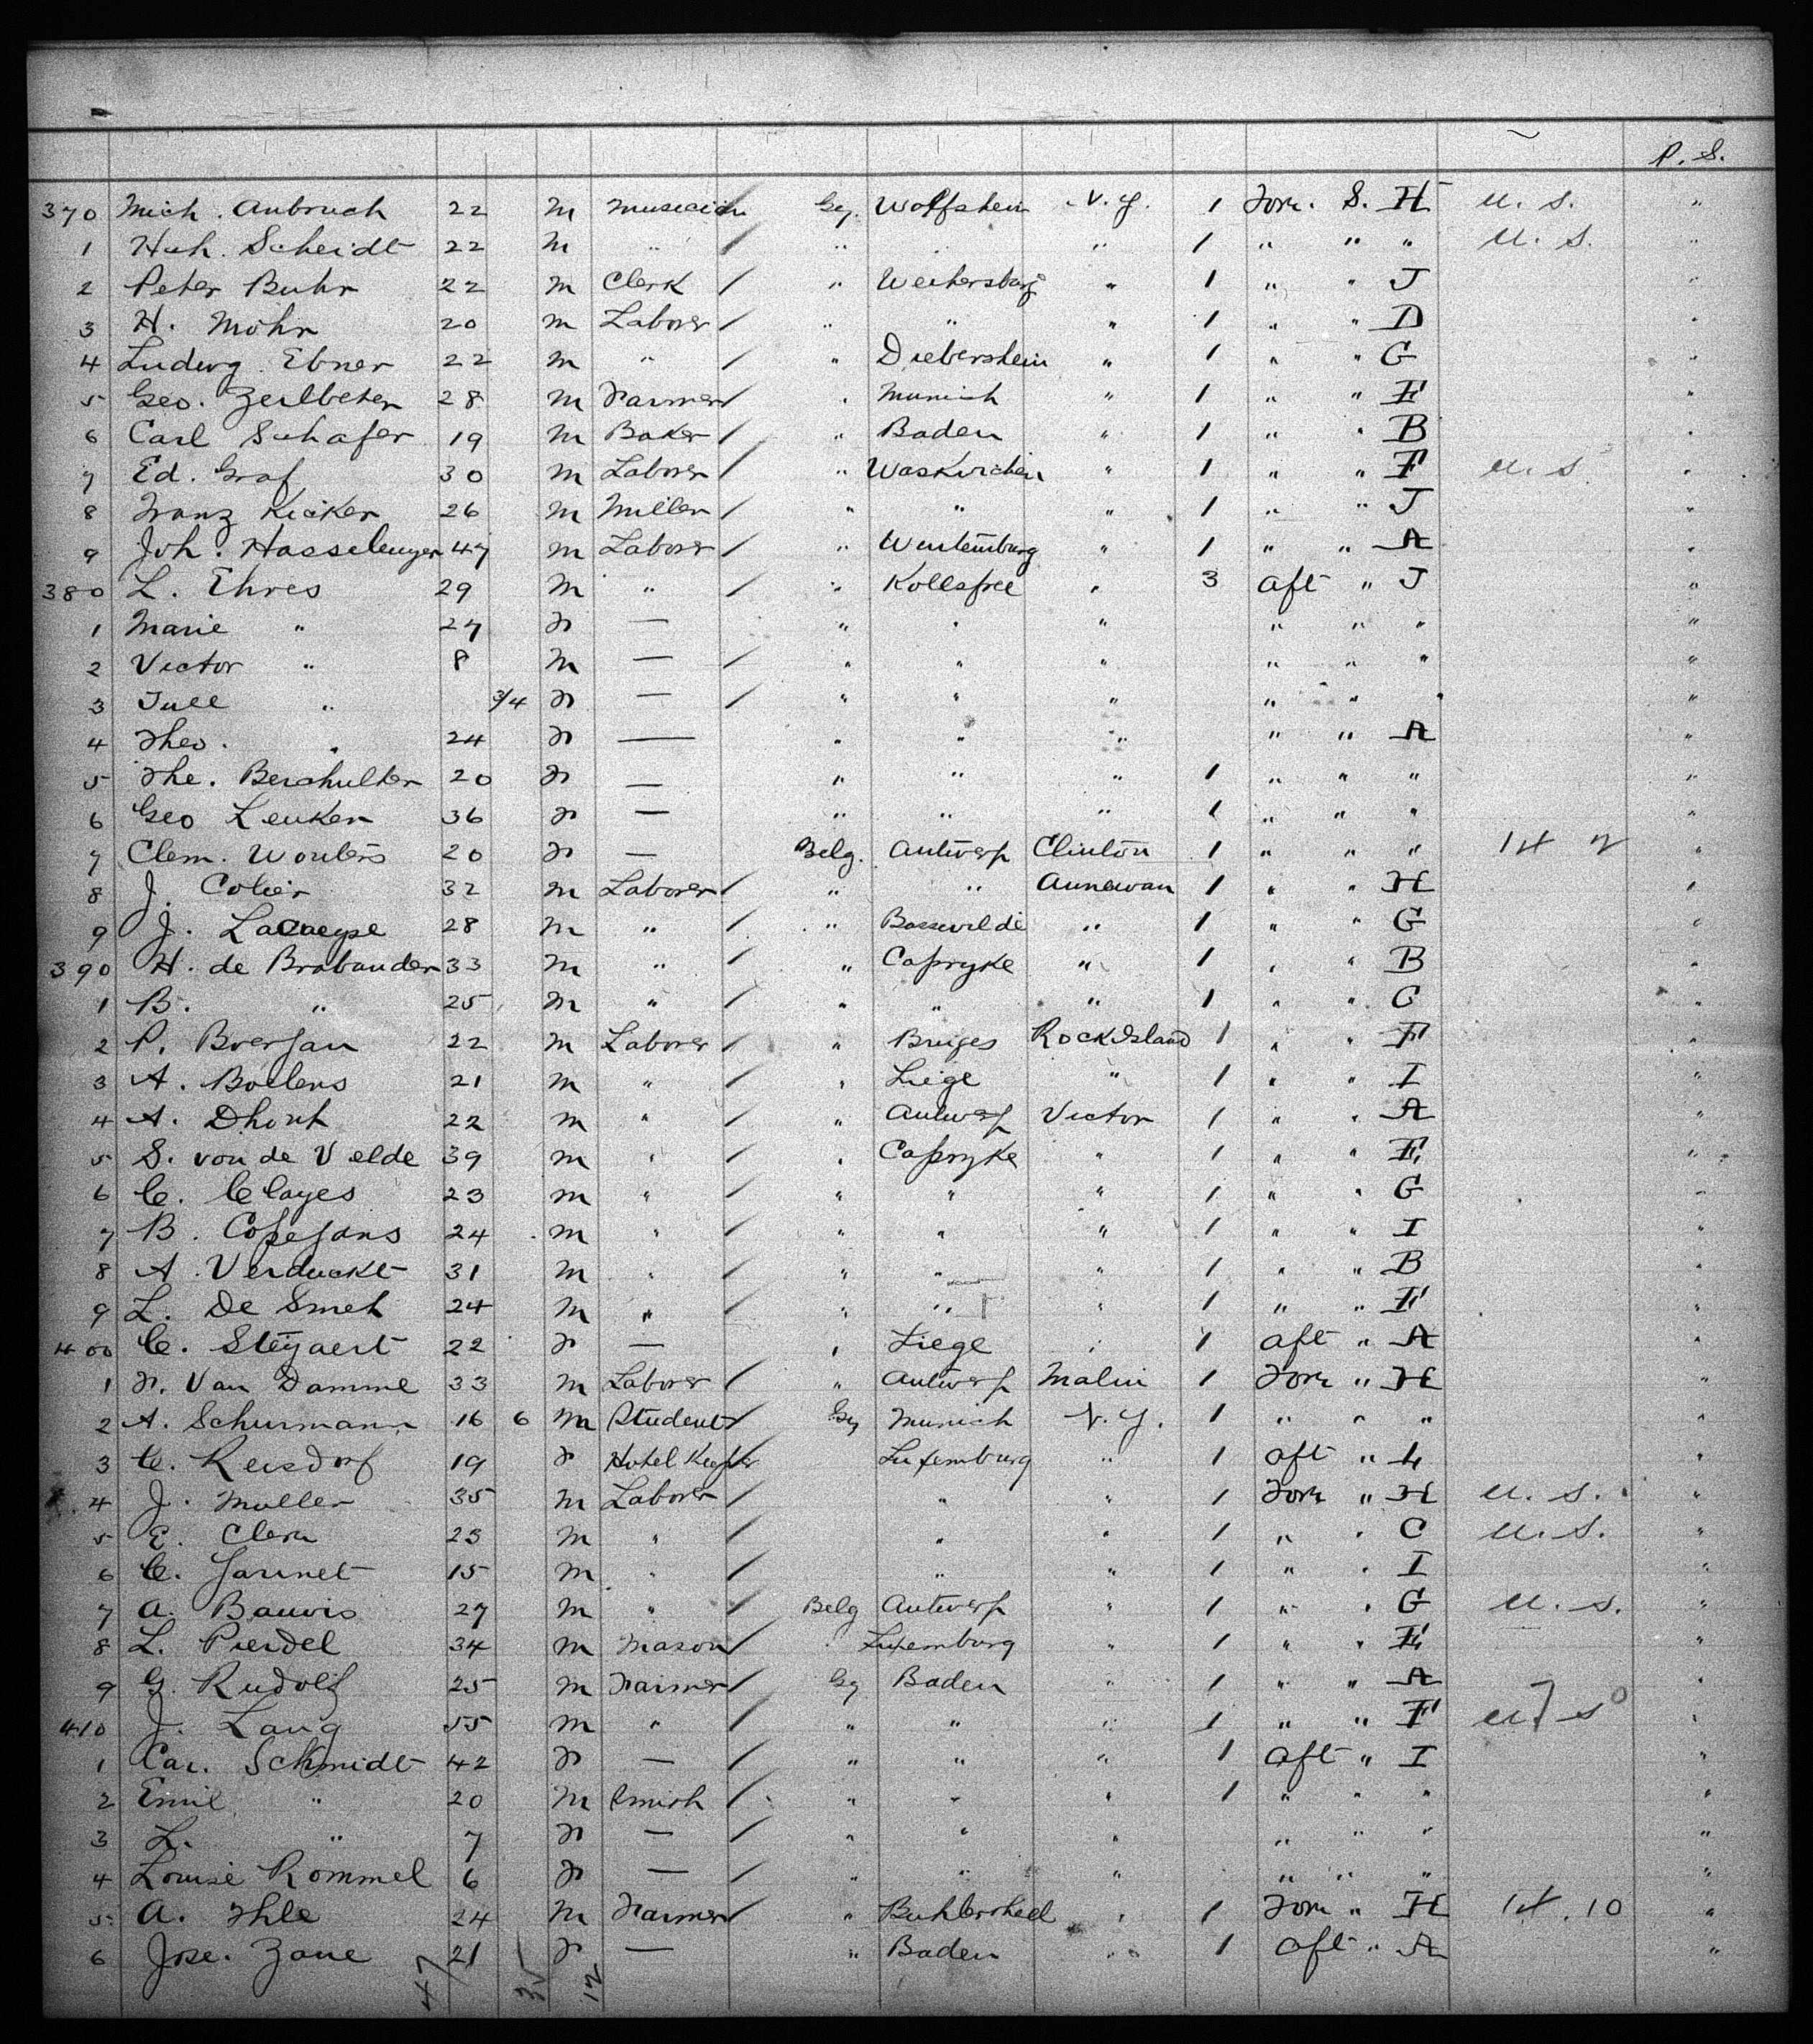 P. S.
370 Mich. Anbruch 22 M Musician / Gy. Wolfstein N.Y. 1 Forw. S. H U.S. "
1 Hch. Scheidt 22 M " / " " " 1 " " " U.S. "
2 Peter Buhr 22 M Clerk / " " 1 " " J "
3 H. Mohr 20 M Laborer / " " " 1 " " D "
4 Ludwig Ebner 22 M " / " Dieberstein " 1 " " G "
5 Geo. 28 M Farmer / " Munich " 1 " " E "
6 Carl Schafer 19 M Baker / " Baden " 1 " " B "
7 Ed. Graf 30 M Laborer / " " 1 " " F U.S. "
8 Franz Kicker 26 M Miller / " " " 1 " " J "
9 Joh. 47 M Laborer / " Wurtemburg " 1 " " A "
380 L. Ehres 29 M " / " " 3 Aft " J "
1 Marie " 27 F — " " " " " " "
2 Victor " 8 M — / " " " " " " "
3 " 3/4 F — / " " " " " " "
4 Theo. " 24 F — " " " " " A "
5 The. 20 F — " " " 1 " " " "
6 Geo Leuker 36 F — " " " 1 " " " "
7 Clem. Wouters 20 F — Belg. Antwerp Clinton 1 " " " "
8 J. 32 M Laborer / " " Annawan 1 " " H "
9 J. 28 M " / " Bassevelde " 1 " " G "
390 H. de Brabander 33 M " / " Capryke " 1 " " B "
1 B. " 25 M " / " " " 1 " " C "
2 P. 22 M Laborer / " Bruges Rock Island 1 " " F "
3 A. Boelens 21 M " / " Liege " 1 " " I "
4 A. Dhont 22 M " / " Antwerp Victor 1 " " A "
5 S. von de Velde 39 M " / " Capryke " 1 " " E "
6 C. Clayes 23 M " / " " " 1 " " G "
7 B. Copejans 24 M " / " " " 1 " " I "
8 A. Verduckt 31 M " / " " " 1 " " B "
9 L. De Smet 24 M " / " " " 1 " " F "
400 C. Steyaert 22 F — " Liege " 1 Aft " A "
1 F. Van Damme 33 M Laborer / " Antwerp Malin 1 Forw " H "
2 A. Schurmann 16 6 M Student / Gy Munich N.Y. 1 " " " "
3 C. Reisdorf 19 F Hotel Keeper Luxemburg " 1 Aft " "
4 J. Muller 35 M Laborer / " " 1 Forw " H U.S. "
5 E. Clern 23 M " / " " 1 " " C U.S. "
6 C. 15 M " / " " 1 " " I "
7 A. Bauvis 27 M " / Belg Antwerp " 1 " " G U.S. "
8 L. Pierdel 34 M Mason / " Luxemburg " 1 " " E "
9 G. Rudolf 25 M Farmer / Gy Baden " 1 " " A "
410 J. Lang 55 M " / " " " 1 " " F U.S "
1 Car. Schmidt 42 F — / " " " 1 Aft " I "
2 Emil " 20 M Smith / " " " 1 " " " "
3 L. " 7 F — / " " " " " " "
4 Louise Rommel 6 F — / " " " " " " "
5 A. Ihle 24 M Farmer / " " 1 Forw " H "
6 Jose. Zane 21 F — " Baden " 1 Aft " A "
47 35 12